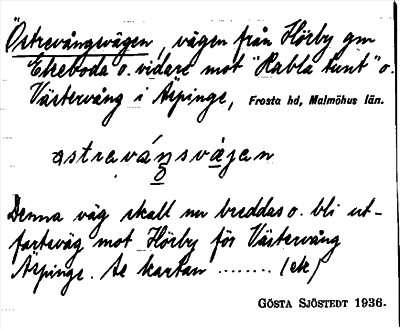 "Östrevångsvägen, vägen från Hörby gm
Ekeboda o. vidare mot "Rabla tunt" o.
Västervång i Äspinge, Frosta hd, Malmöhus län.
astrevánsvägen
Denna väg skall nu breddas o. bli ut-
fartsväg mot Hörby för Västervång
Äspinge. Se kartan ........ (ek)
GÖSTA SJÖSTEDT 1936.